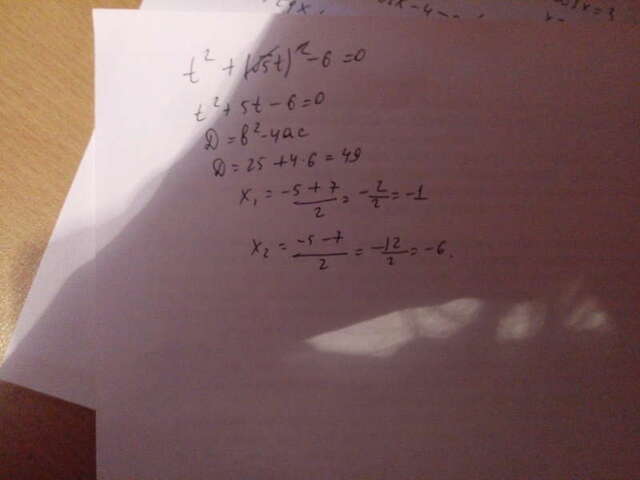 t² + (√5t)² - 6 = 0
t² + 5t - 6 = 0
D = b² - 4ac
D = 25 + 4·6 = 49
x₁ = (-5 + 7)/2 = -2/2 = -1
x₂ = (-5 - 7)/2 = -12/2 = -6.